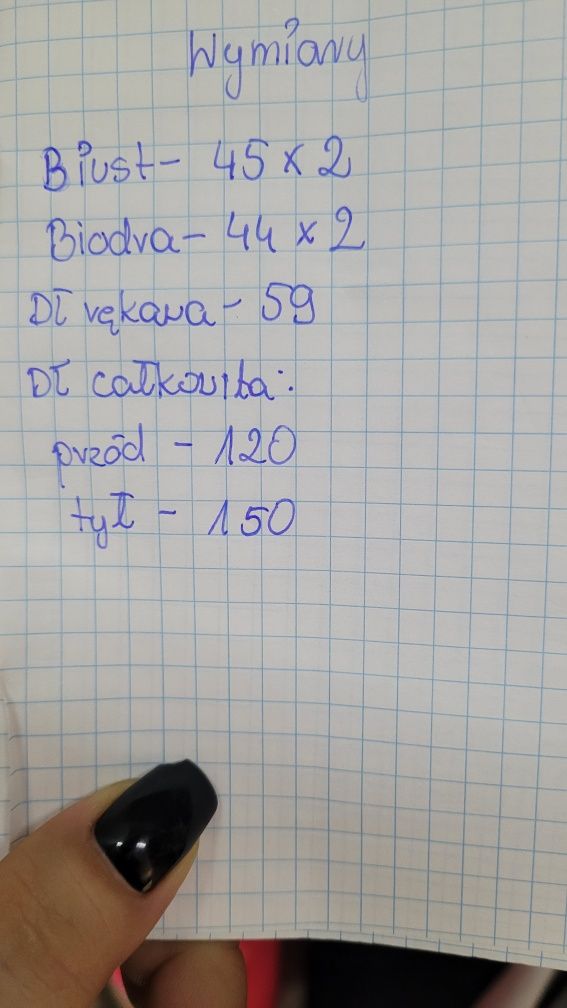 Wymiary
Biust - 45 x 2
Biodra - 44 x 2
Dł rękawa - 59
Dł całkowita:
przód - 120
tył - 150